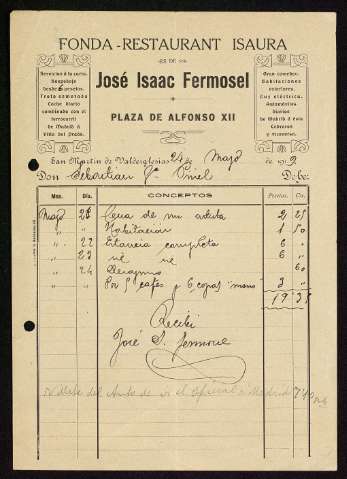 FONDA-RESTAURANT ISAURA
DE
José Isaac Fermosel
PLAZA DE ALFONSO XII
Servicio á la carta.
Hospedaje
desde 5 pesetas.
Trato esmerado
Coche diario
combinado con el
ferrocarril
de Madrid á
Villa del Prado.
Gran comedor.
Habitaciones
exteriores.
Luz eléctrica.
Automóviles
diarios
de Madrid á esta
Cebreros
y viceversa.
San Martín de Valdeiglesias 24 de Mayo de 191
Don Sebastian Debe:
Mes. Día. CONCEPTOS Pesetas. Cts.
Mayo Cena de un 2 25
" " Habitacion 1 50
" 22 Estancia completa 6 "
" 23 6 "
" 24 Desayuno " 60
" " Por 5 cafés y 6 copas "mono" 3 "
19 35
Recibí
José I. Fermosel